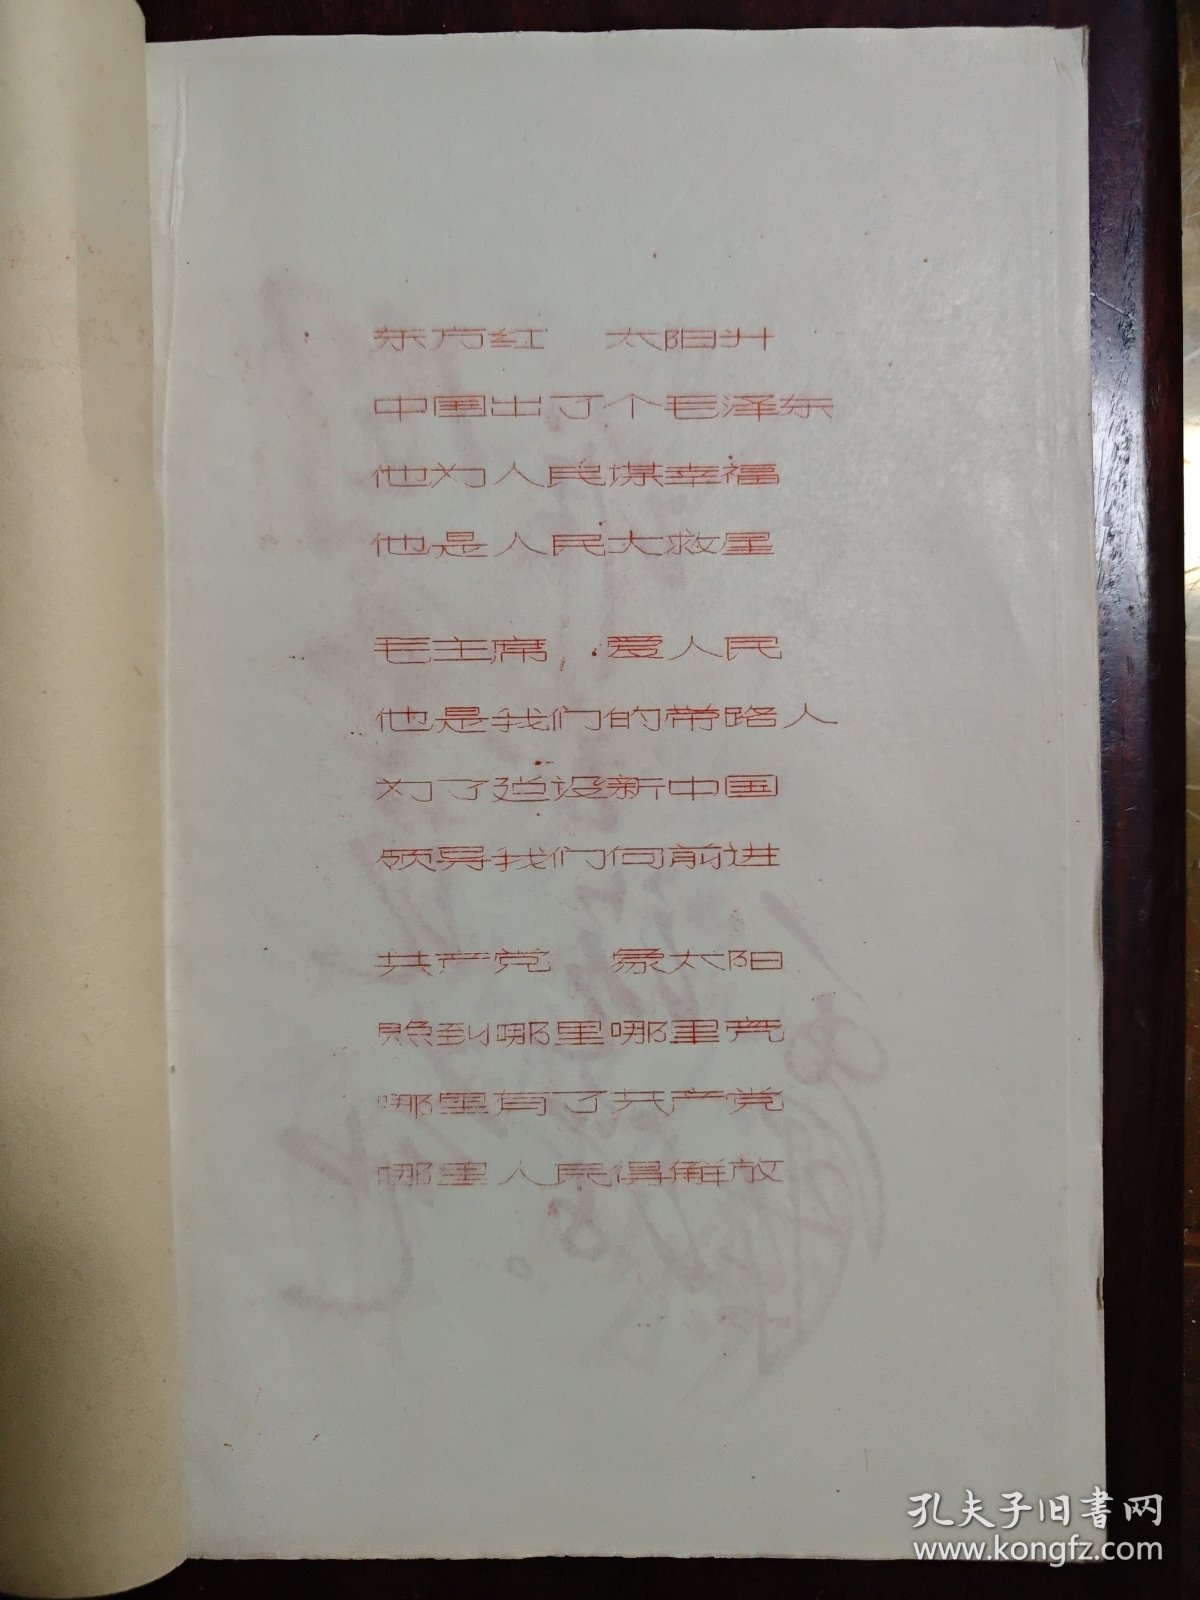 东方红 太阳升
中国出了个毛泽东
他为人民谋幸福
他是人民大救星
毛主席，爱人民
他是我们的带路人
为了建设新中国
领导我们向前进
共产党 象太阳
照到哪里哪里亮
哪里有了共产党
哪里人民得解放
孔夫子旧书网
www.kongfz.com